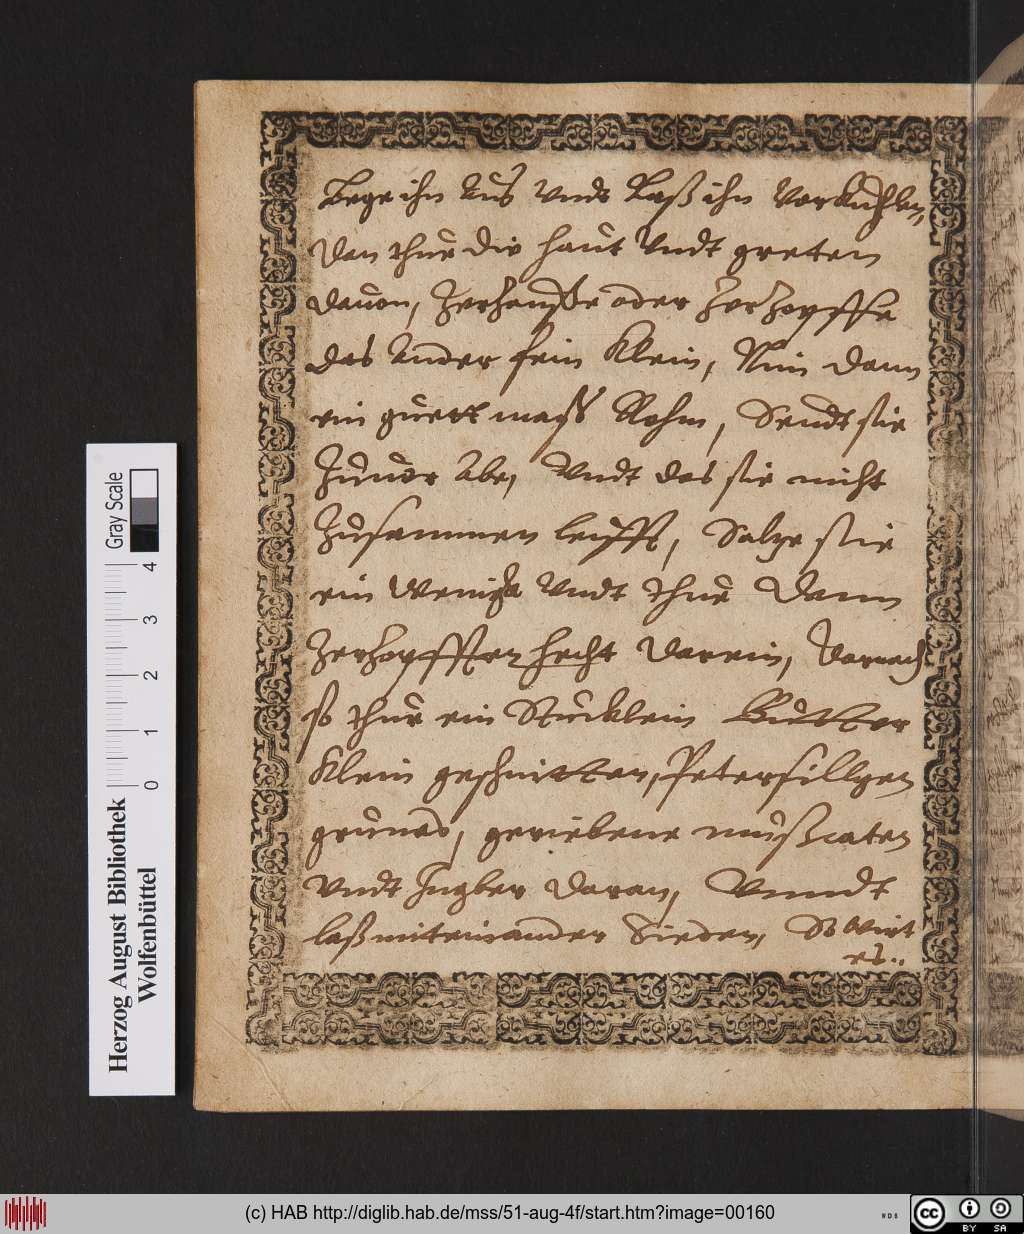 Lege ihn Aus Vnds Laß ihn Verkuhlen,
Dan thue die haut Vndt greten
dauon, Zerhauße oder Zerhopffe
das Ander fein Klein, Nim dann
ein guett mass Rohm, Sendt sie
Zuuor Abe, Vndt das sie nicht
Zusammen leufft, Salze sie
ein Wenigk Vndt thue Dann
Zerhopfften hecht Darein, Darnach
so thue ein Stucklein Butter
Klein geschnitten, Petersillgen
grunes, geriebene mußcaten
Vndt Ingber Daran, Vnndt
laß miteinander Sieden, So Wirt
es..
Herzog August Bibliothek
Wolfenbüttel
0 1 2 3 4
Gray Scale
(c) HAB http://diglib.hab.de/mss/51-aug-4f/start.htm?image=00160
WDB
cc
BY SA